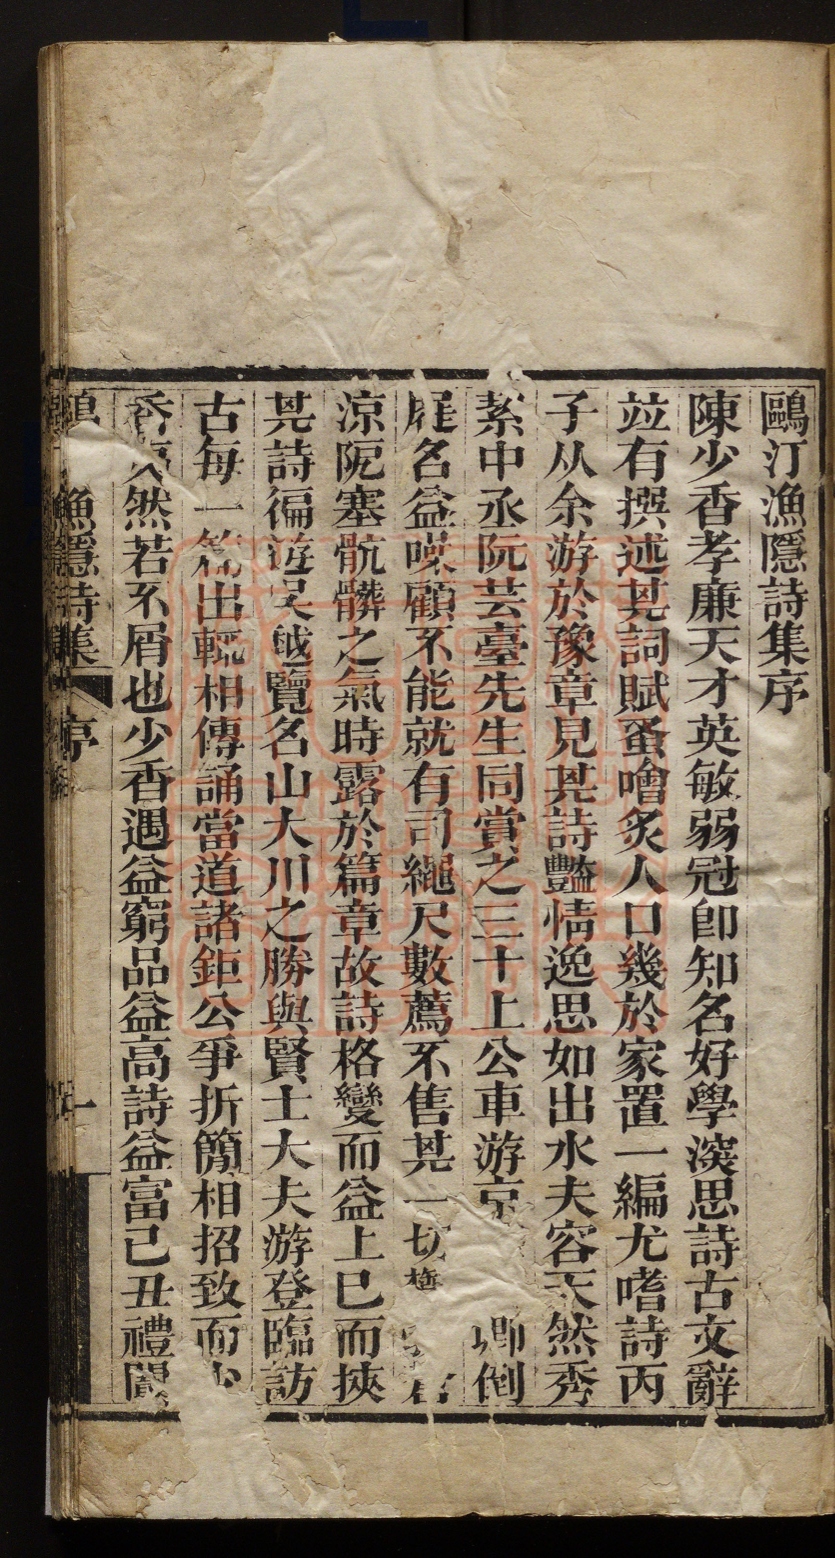 鷗汀漁隱詩集序
陳少香孝廉天才英敏弱冠卽知名好學深思詩古文辭
竝有撰述其詞賦蚤噲炙人口幾於家置一編尤嗜詩丙
子从余游於豫章見其詩豔情逸思如出水夫容天然秀
絜中丞阮芸臺先生同賞之三十上公車游京卿倒
屣名益噪顧不能就有司繩尺數薦不售其一切
涼阨塞骯髒之氣時露於篇章故詩格變而益上已而挾
其詩徧遊吳越覽名山大川之勝與賢士大夫游登臨訪
古每一篇出輒相傳誦當道諸鉅公爭折簡相招致而少
香夷然若不屑也少香遇益窮品益高詩益富己丑禮闈
漁隱詩集 序 一